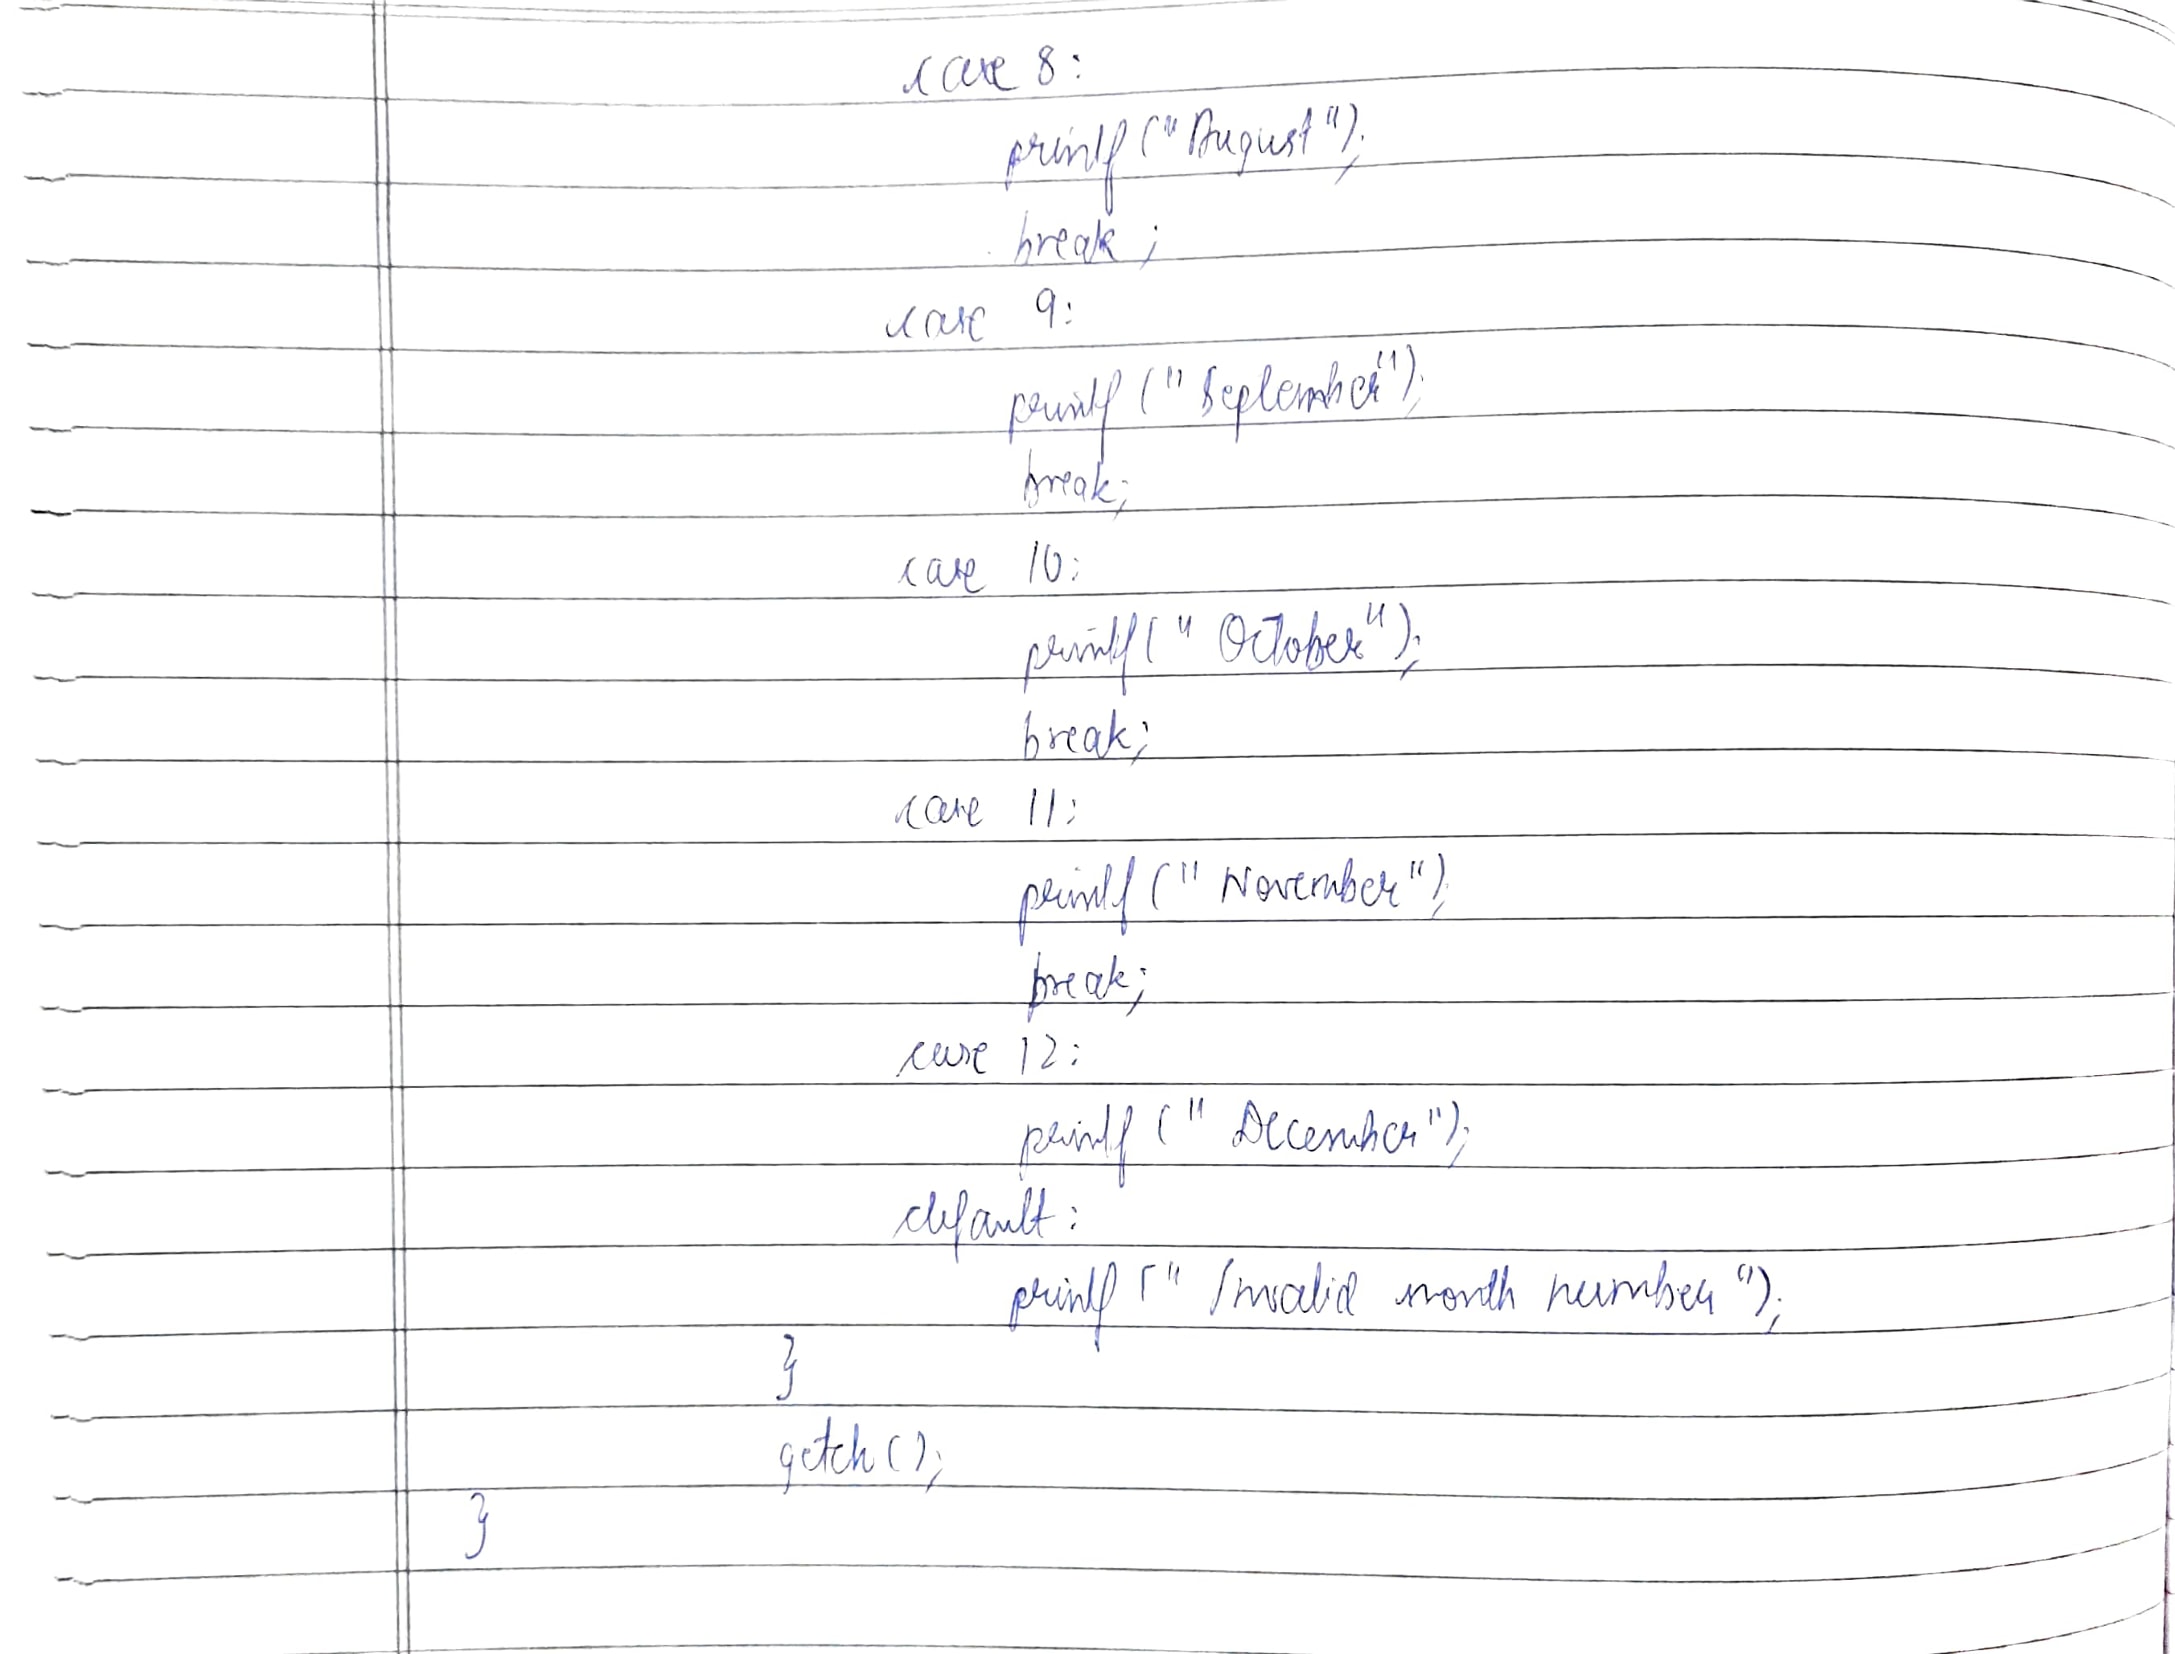 case 8:
printf ("August");
break;
case 9:
printf ("September");
break;
case 10:
printf (" October");
break;
case 11:
printf (" November");
break;
case 12:
printf (" December");
default:
printf (" Invalid month number ");
}
getch();
}